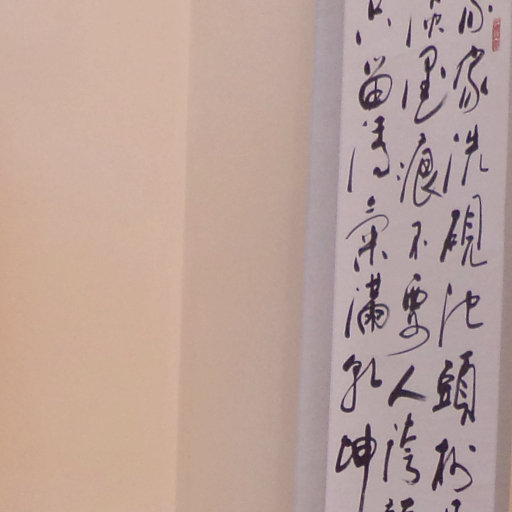 家洗硯池頭樹
淡墨痕不要人誇
留清氣滿乾坤